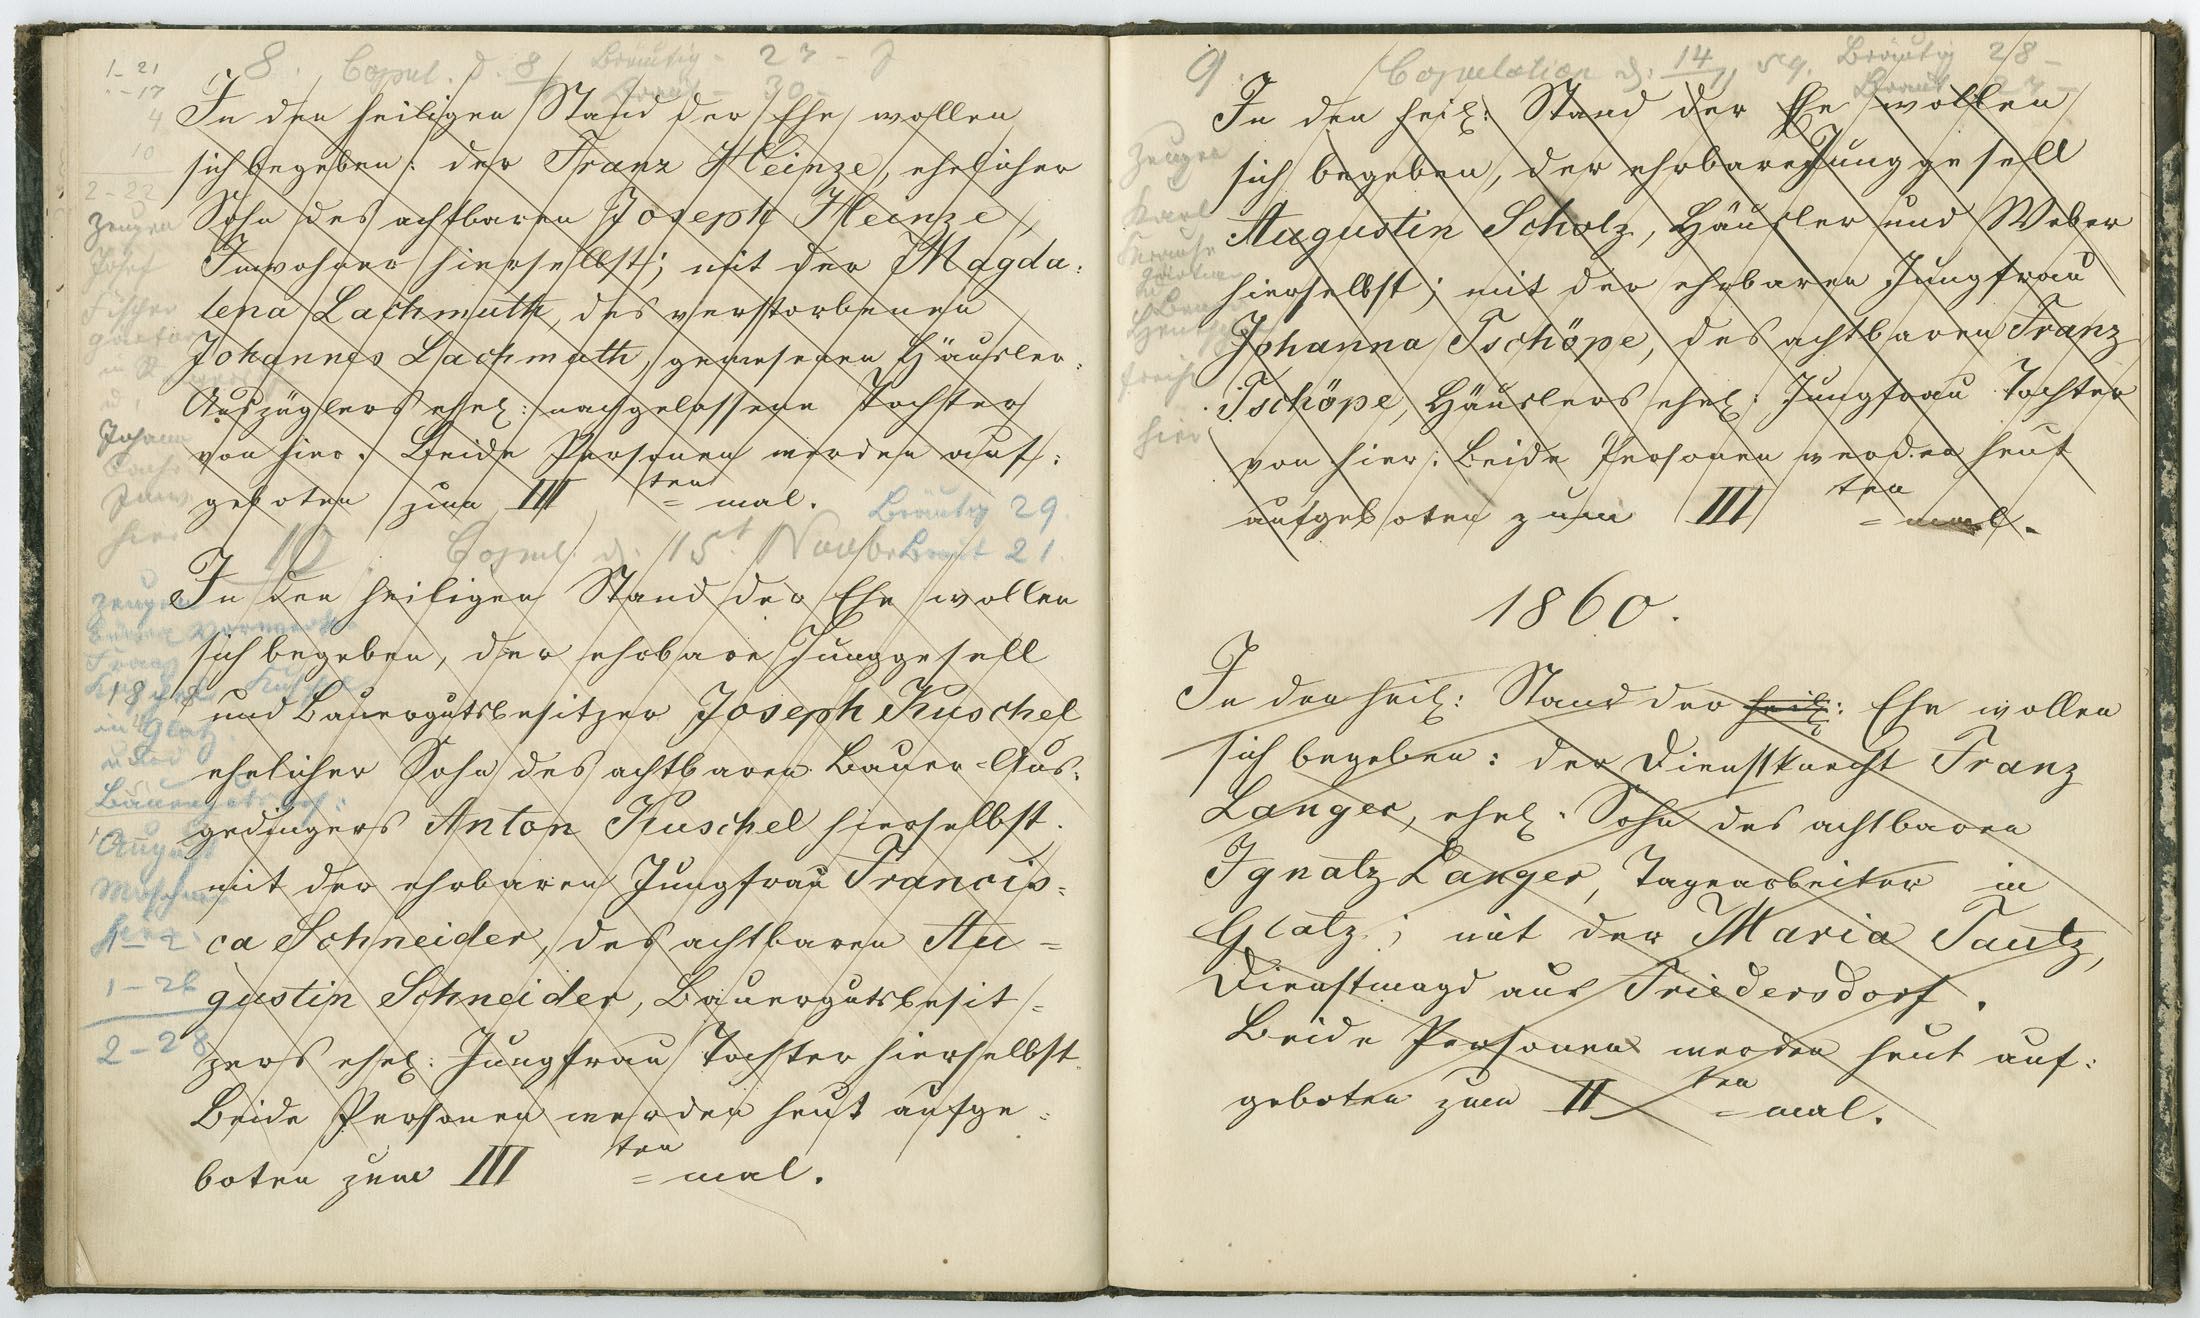 8. Copul. d. 8 Bräutig - 27 - J
Braut - 30 -
1 - 21
1 - 17
4
10
2 - 22
In den heiligen Stand der Ehe wollen
sich begeben: der Franz Heinze, ehelicher
Sohn des achtbaren Joseph Heinze,
Inwohner hierselbst; mit der Magda:
lena Lachmuth, des verstorbenen
Johannes Lachmuth, gewesenen Häusler-
Auszüglers ehel: nachgelassene Tochter
von hier. Beide Personen werden auf:
geboten zum III ten = mal.
Zeugen
Josef
Fischer
Johann
hier
Bräutig 29.
10. Copul. d. 15t Novbr Braut 21.
In den heiligen Stand der Ehe wollen
sich begeben, der ehrbare Junggesell
und Bauergutsbesitzer Joseph Kuschel
ehelicher Sohn des achtbaren Bauer-Aus:
gedingers Anton Kuschel hierselbst.
mit der ehrbaren Jungfrau Francis=
ca Schneider, des achtbaren Au=
gustin Schneider, Bauergutsbesit=
zers ehel: Jungfrau Tochter hierselbst.
Beide Personen werden heut aufge=
boten zum III ten = mal.
Zeugen
Franz
Kuschel
in Glatz.
und
Bauergutsbes:
August
hier.
1 - 2
1 - 26
2 - 28
9. Copulation d: 14 59. Bräutig 28 -
Braut 27 -
In den heil: Stand der Ehe wollen
sich begeben, der ehrbare Junggesell
Augustin Scholz, Häusler und Weber
hierselbst; mit der ehrbaren Jungfrau
Johanna Tschöpe, des achtbaren Franz
Tschöpe, Häuslers ehel: Jungfrau Tochter
von hier: Beide Personen werden heut
aufgeboten zum III ten = mal.
Zeugen
Karl
hier
1860.
In den heil: Stand der heil: Ehe wollen
sich begeben: der Dienstknecht Franz
Langer, ehel: Sohn des achtbaren
Ignatz Langer, Tagearbeiter in
Glatz; mit der Maria Tautz,
Dienstmagd aus Friedersdorf.
Beide Personen werden heut auf:
geboten zum II ten = mal.